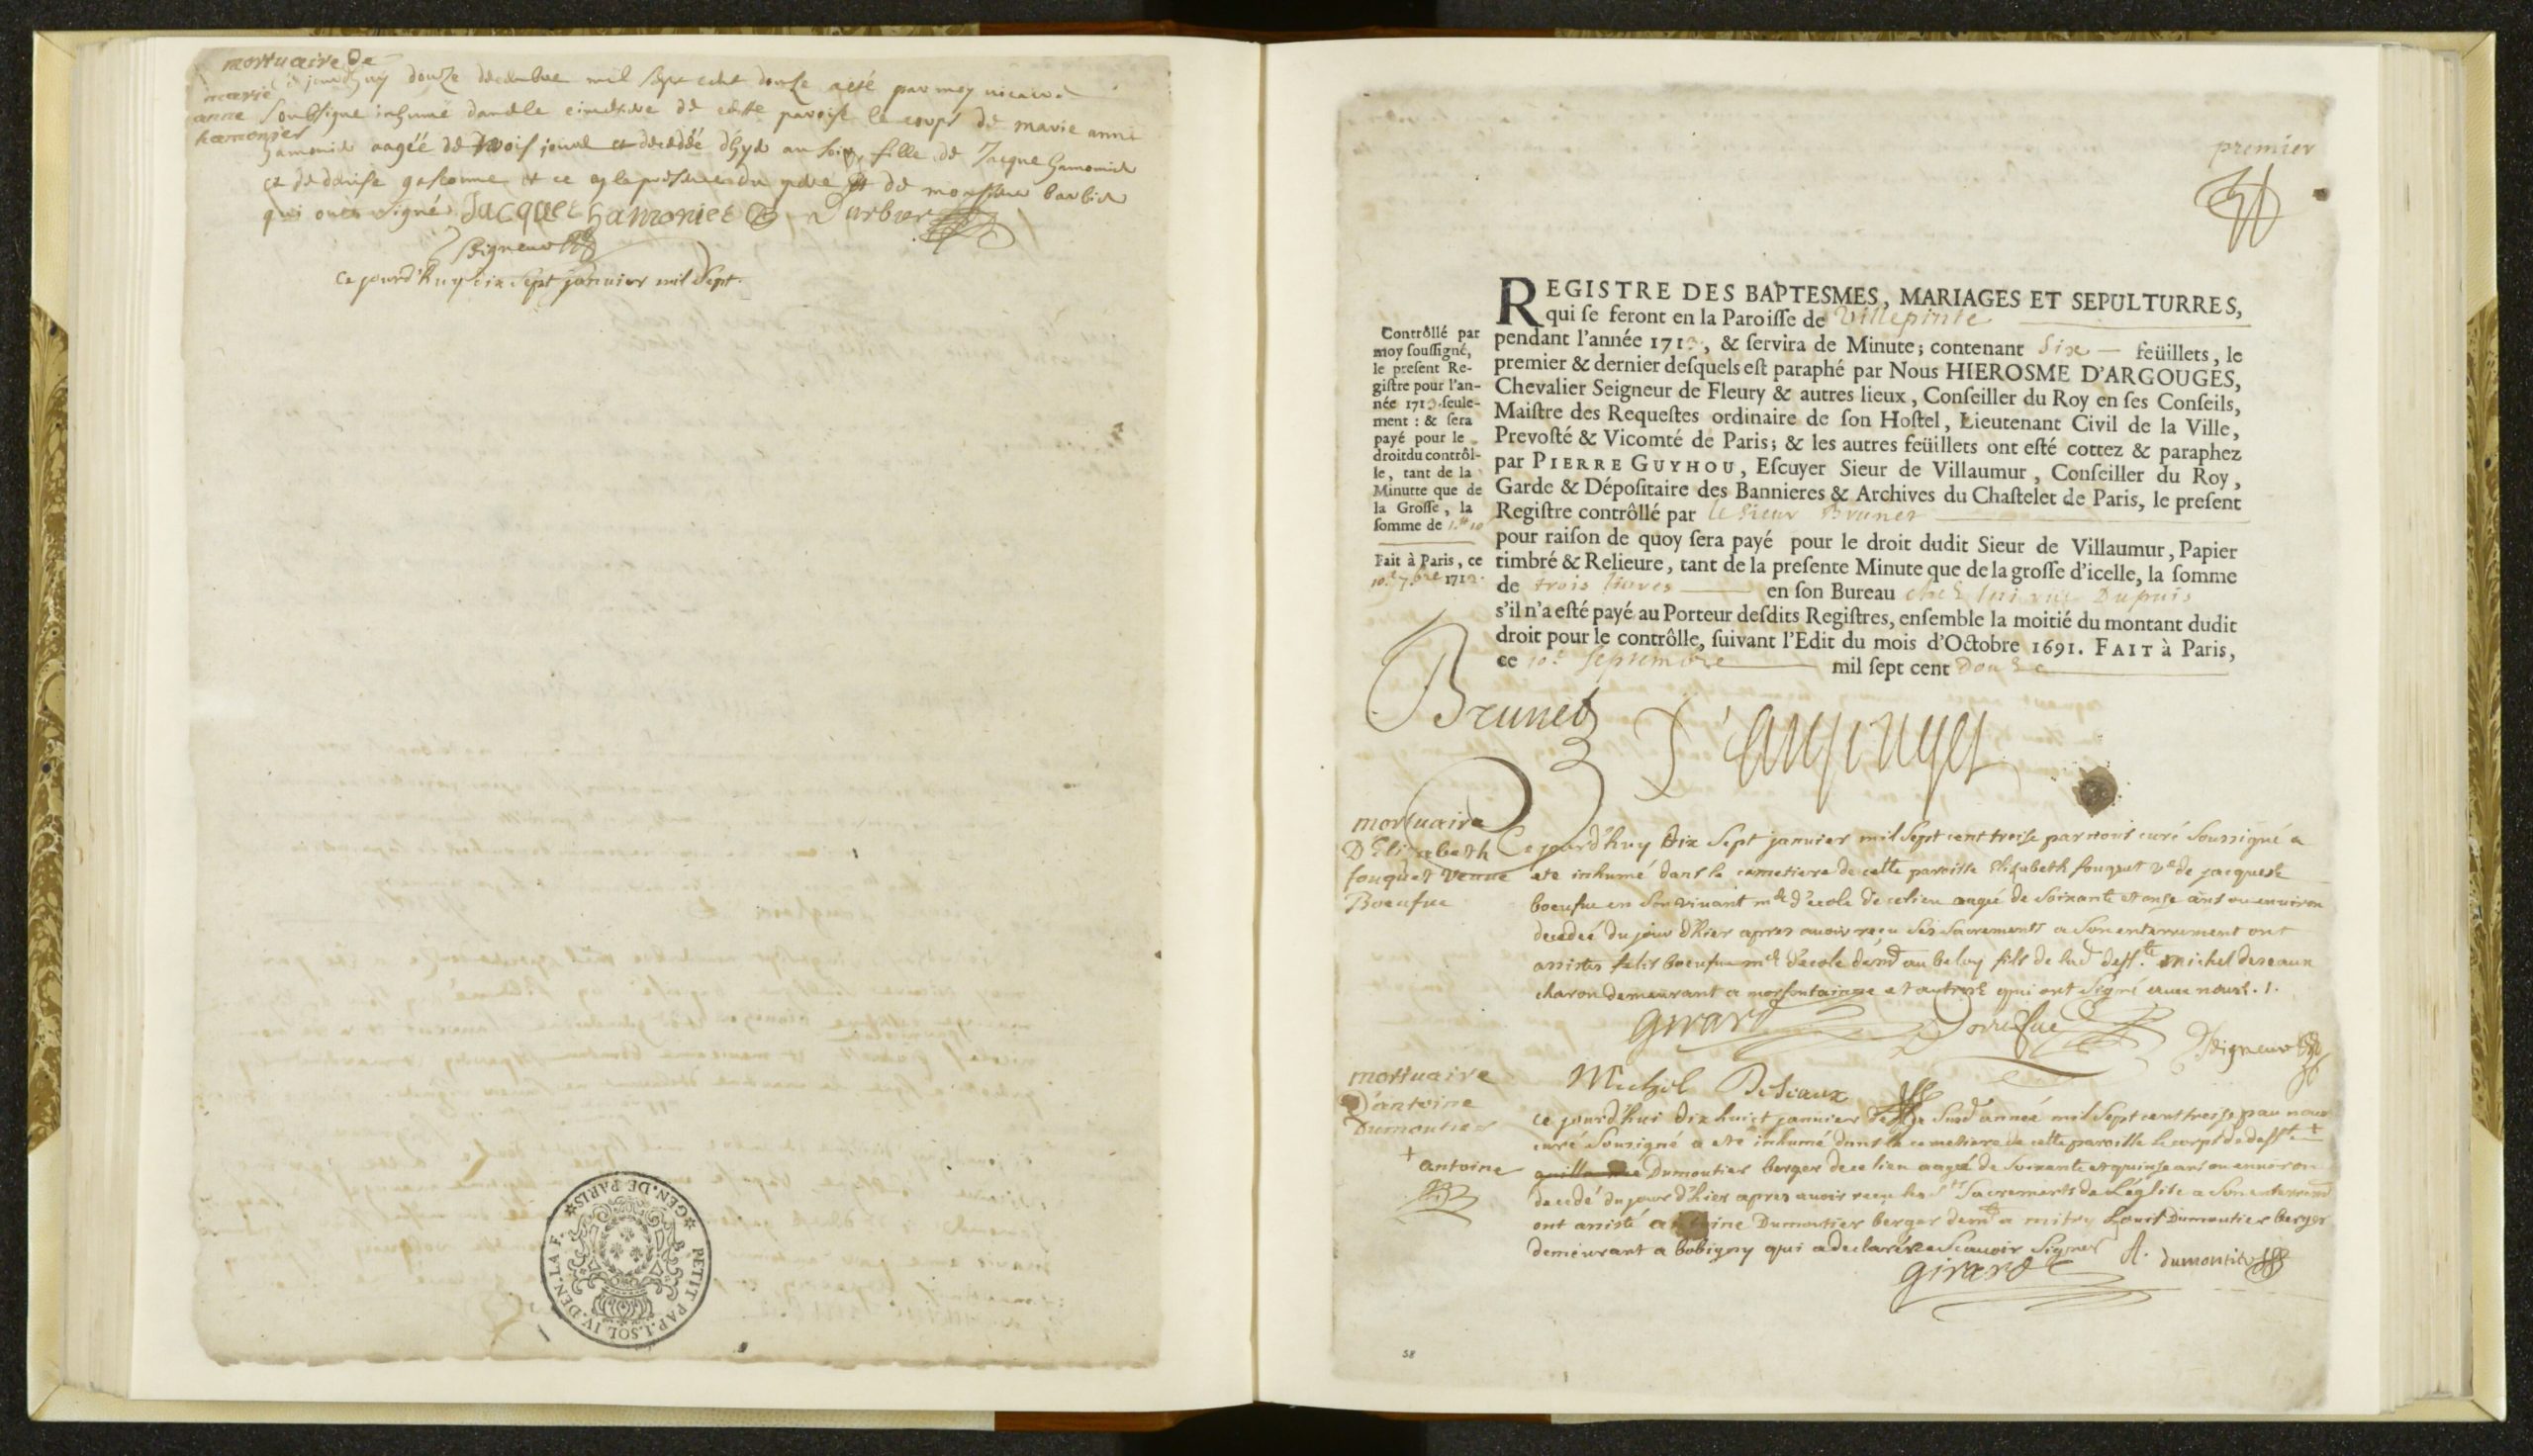 mortuaire de
marie
anne
hamonier
ce jourdhuy douze decembre mil sept cent douze a esté par moy vicaire
soubsigné inhumé dans le cimetiere de cette paroisse le corps de marie anne
hamonier aagéé de trois jours et decedéé d'hyer au soir, fille de Jacque hamonier
et de denise gasconne et ce en la presence du pere et de monsieur barbier
qui ont signé Jacques hamonier Barbier
Seigneur
Ce jourd'huy dix sept janvier mil sept
PETIT PAP. 1. SOL. IV. DEN. LA F.
GEN. DE PARIS
premier
REGISTRE DES BAPTESMES, MARIAGES ET SEPULTURRES,
qui se feront en la Paroisse de Villepinte
pendant l'année 1713, & servira de Minute; contenant Six feüillets, le
premier & dernier desquels est paraphé par Nous HIEROSME D'ARGOUGES,
Chevalier Seigneur de Fleury & autres lieux, Conseiller du Roy en ses Conseils,
Maistre des Requestes ordinaire de son Hostel, Lieutenant Civil de la Ville,
Prevosté & Vicomté de Paris; & les autres feüillets ont esté cottez & paraphez
par PIERRE GUYHOU, Escuyer Sieur de Villaumur, Conseiller du Roy,
Garde & Dépositaire des Bannieres & Archives du Chastelet de Paris, le present
Registre contrôllé par le Sieur Brunet
pour raison de quoy sera payé pour le droit dudit Sieur de Villaumur, Papier
timbré & Relieure, tant de la presente Minute que de la grosse d'icelle, la somme
de trois livres en son Bureau chez lui rue Dupuis
s'il n'a esté payé au Porteur desdits Registres, ensemble la moitié du montant dudit
droit pour le contrôlle, suivant l'Edit du mois d'Octobre 1691. FAIT à Paris,
ce 10e Septembre mil sept cent Douze
Contrôllé par
moy soussigné,
le present Re-
gistre pour l'an-
née 1713 seule-
ment : & sera
payé pour le
droit du contrôl-
le, tant de la
Minutte que de
la Grosse, la
somme de
Fait à Paris, ce
10e 7bre 1712.
Brunet D'argouges
mortuaire
D'Elizabeth
fouquet veuve
Boeufue
Ce jourd'huy dix sept janvier mil sept cent treise par nous curé soussigné a
ete inhumé dans le cimetiere de cette paroisse Elizabeth fouquet ve de jacques le
boeufue en son vivant me d'ecole de ce lieu aagée de soixante et onze ans ou environ
decedeé du jour d'hier apres avoir reçu ses sacrements a son enterrement ont
assistés felix boeufue me d'ecole demt au belay fils de lad deffte michel deseaux
charon demeurant a morfontainne et autres qui ont signé avec nous. 1.
Girard Boeufue Seigneur
Michel Deseaux
mortuaire
D'antoine
Dumoutier
+ antoine
ce jourd'hui dix huict janvier de la susd année mil sept cent treise par nous
curé sousigné a eté inhumé dans le cemetiere de cette paroisse le corps de defft +
guillaume Dumoutier berger de ce lieu aagé de soixante et quinse ans ou environ
decedé du jour d'hier apres avoir reçu les sts Sacrements de l'église a son enterremt
ont assisté antoine Dumoutier berger demt a mitry Louis Dumoutier berger
demeurant a bobigny qui a declaré ne scavoir signer A. dumoutier
Girard
58